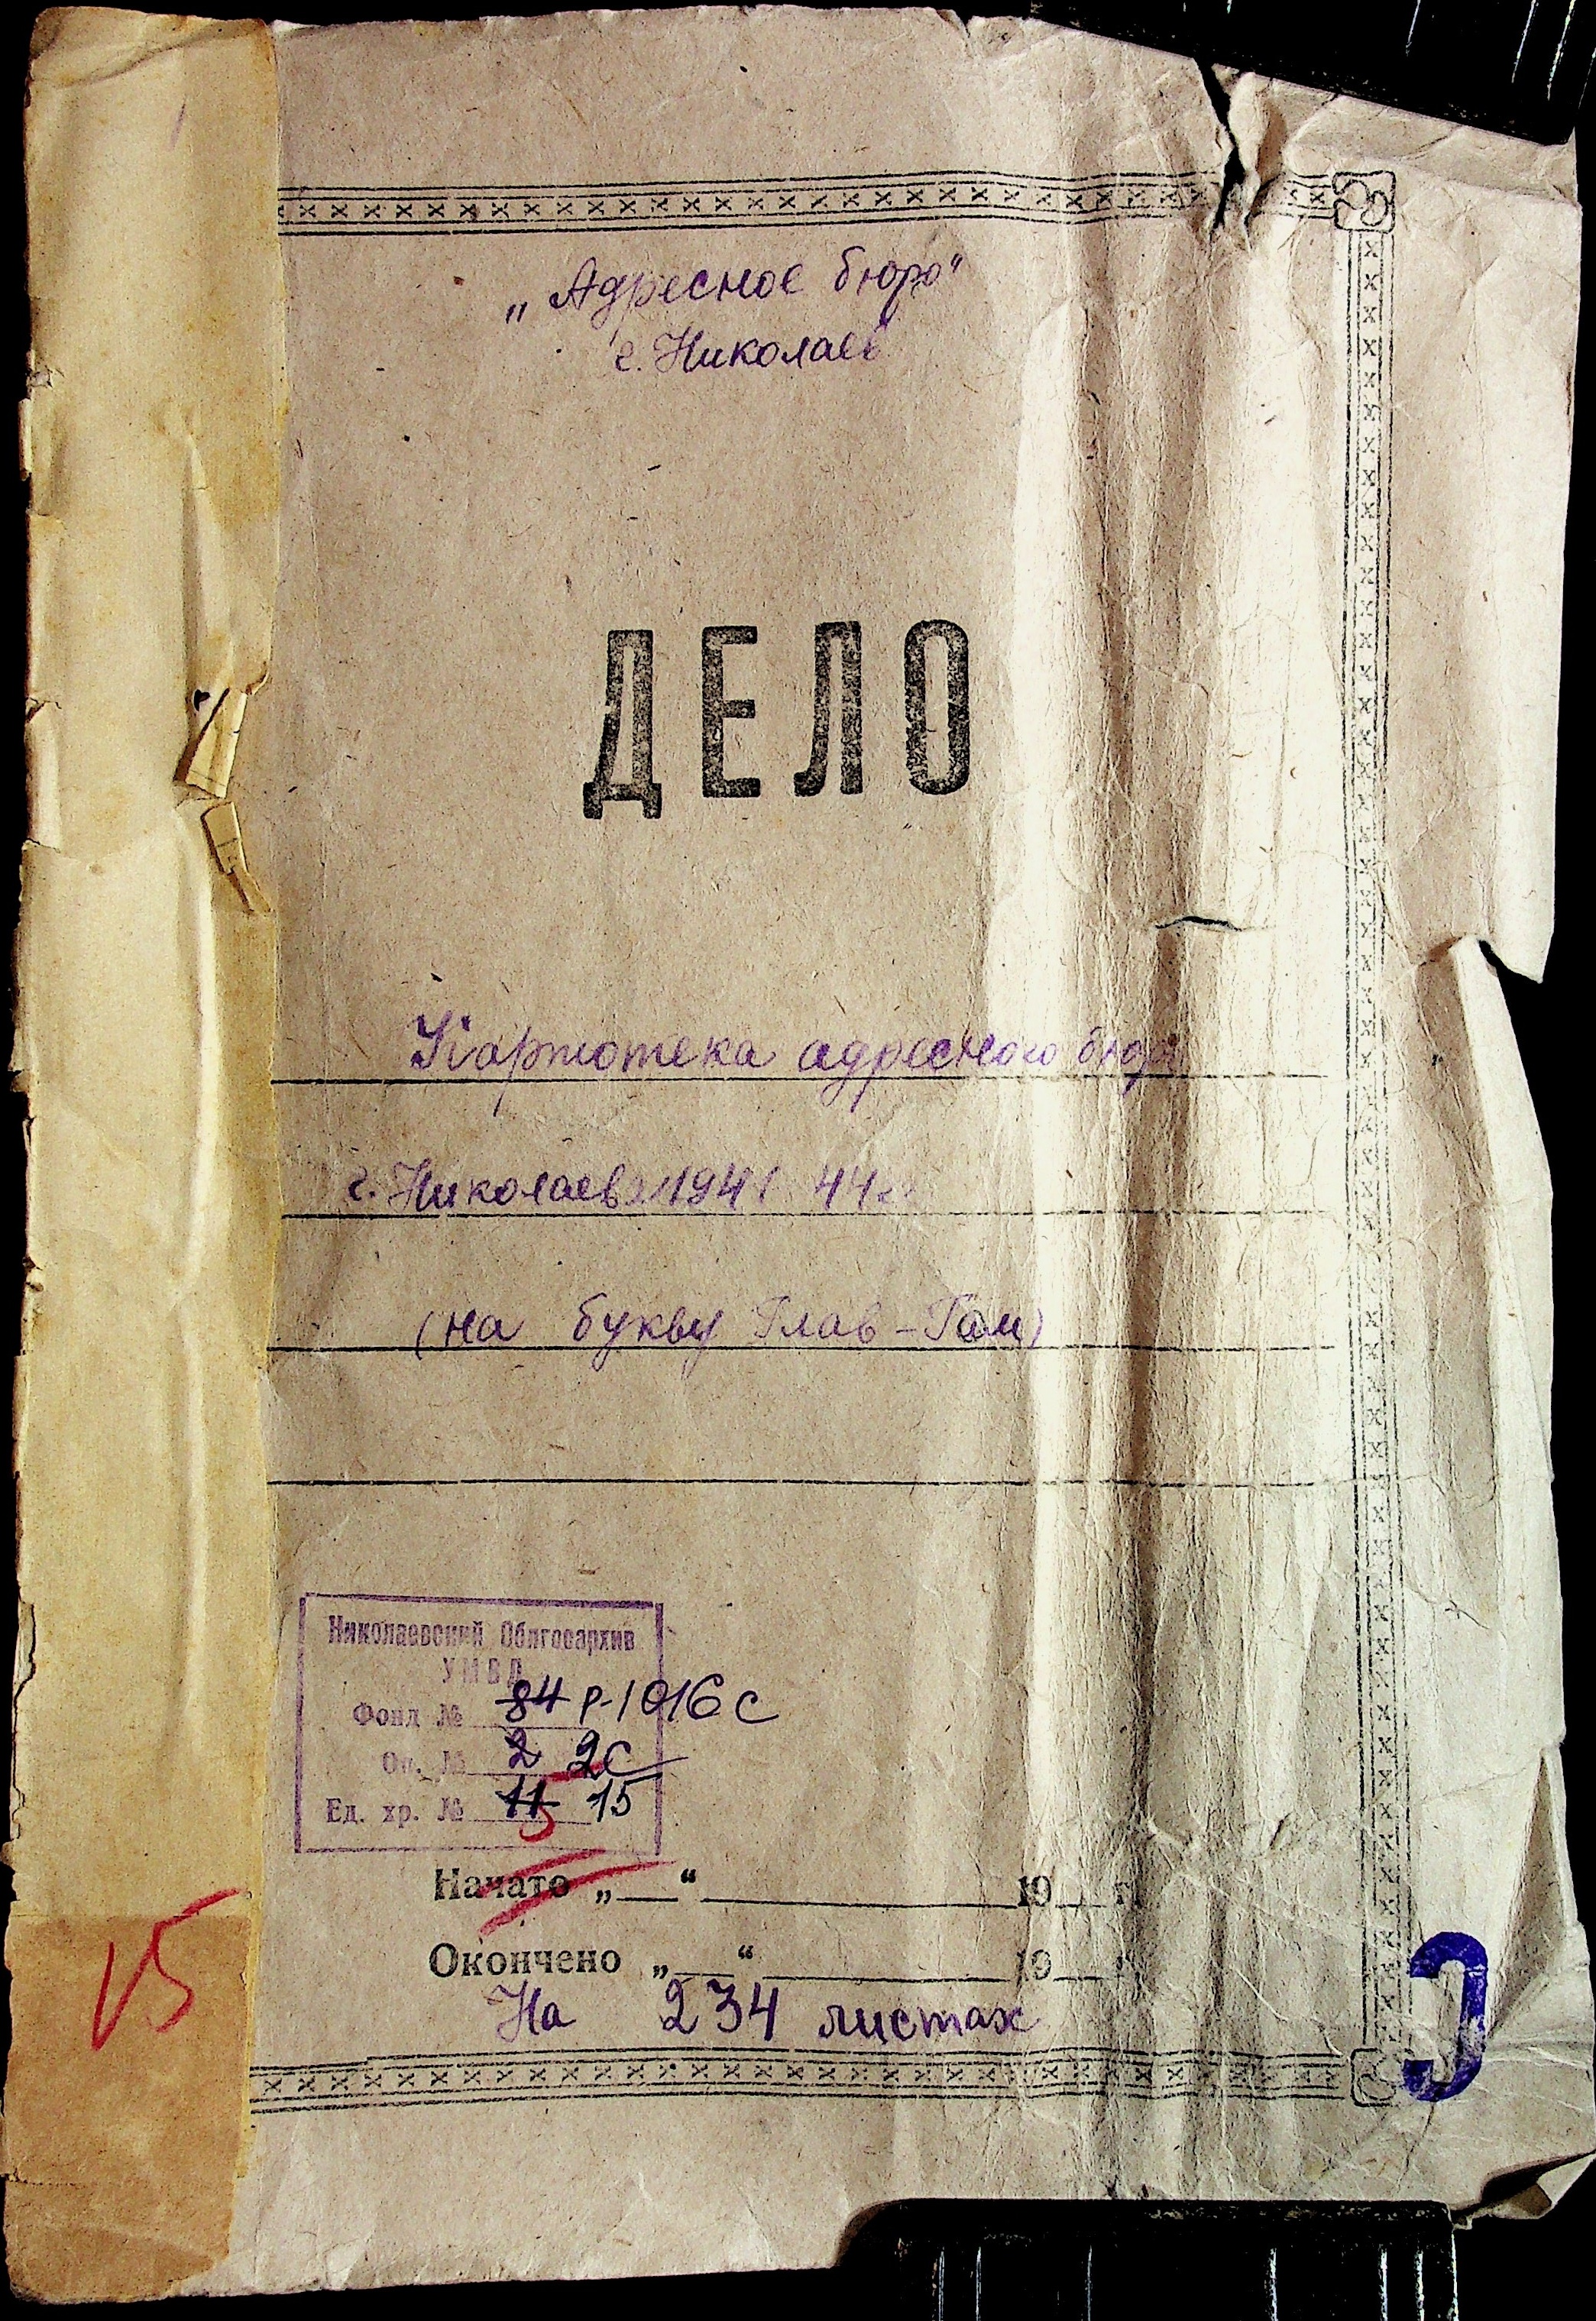 „Адресное бюро"
г. Николаев
ДЕЛО
Картотека адресного бюро
г. Николаева 1941 44гг
(на букву Глав - Гом)
Николаевский Облгосархив
УМВД
Фонд № 84 Р-1016 с
Оп. № 2 2с
Ед. хр. № 11 15
Начато „ “ 19 г.
Окончено „ “ 19 г.
На 234 листах
15
С